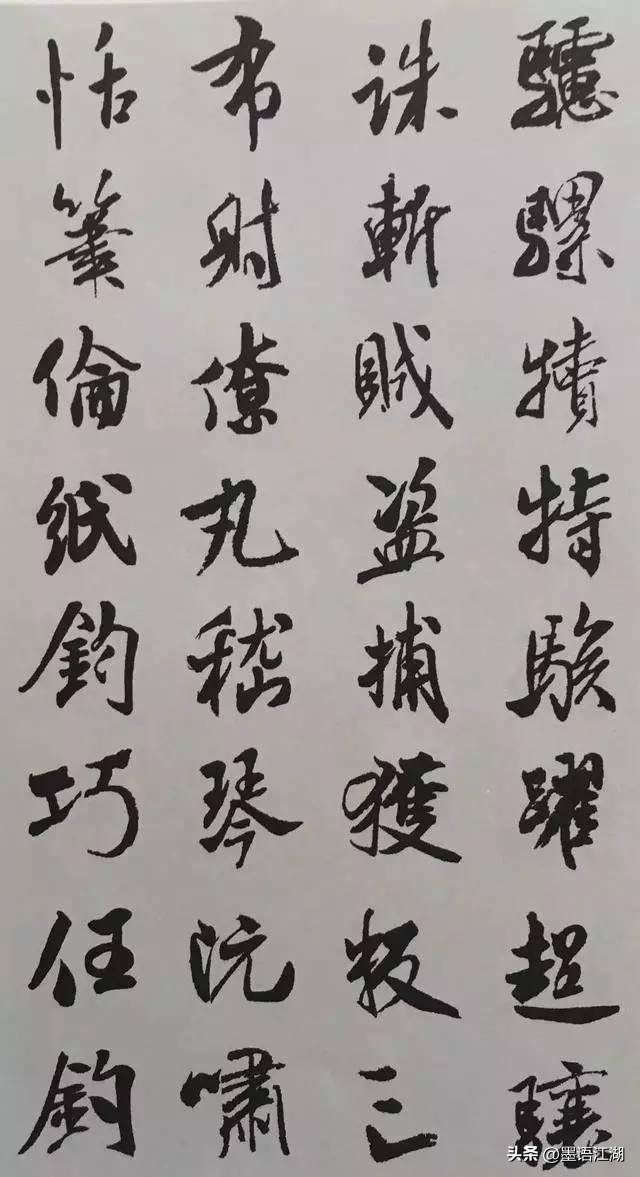 驢騾犢特駭躍超驤
誅斬賊盜捕獲叛亡
布射僚丸嵇琴阮嘯
恬筆倫紙鈞巧任釣
头条 @墨语江湖